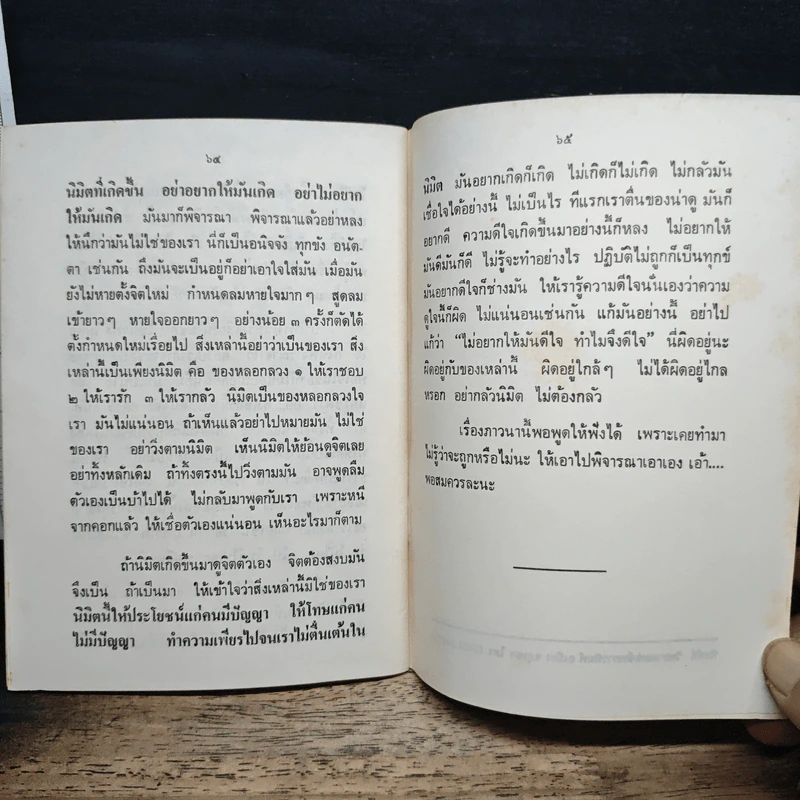 ๖๔
นิมิตที่เกิดขึ้น อย่าอยากให้มันเกิด อย่าไม่อยาก
ให้มันเกิด มันมาก็พิจารณา พิจารณาแล้วอย่าหลง
ให้นึกว่ามันไม่ใช่ของเรา นี่ก็เป็นอนิจจัง ทุกขัง อนัต-
ตา เช่นกัน ถึงมันจะเป็นอยู่ก็อย่าเอาใจใส่มัน เมื่อมัน
ยังไม่หายตั้งจิตใหม่ กำหนดลมหายใจมาก ๆ สูดลม
เข้ายาว ๆ หายใจออกยาว ๆ อย่างน้อย ๓ ครั้งก็ตัดได้
ตั้งกำหนดใหม่เรื่อยไป สิ่งเหล่านี้อย่าว่าเป็นของเรา สิ่ง
เหล่านี้เป็นเพียงนิมิต คือ ของหลอกลวง ๑ ให้เราชอบ
๒ ให้เรารัก ๓ ให้เรากลัว นิมิตเป็นของหลอกลวงใจ
เรา มันไม่แน่นอน ถ้าเห็นแล้วอย่าไปหมายมัน ไม่ใช่
ของเรา อย่าวิ่งตามนิมิต เห็นนิมิตให้ย้อนดูจิตเลย
อย่าทิ้งหลักเดิม ถ้าทิ้งตรงนี้ไปวิ่งตามมัน อาจพูดลืม
ตัวเองเป็นบ้าไปได้ ไม่กลับมาพูดกับเรา เพราะหนี
จากคอกแล้ว ให้เชื่อตัวเองแน่นอน เห็นอะไรมาก็ตาม
ถ้านิมิตเกิดขึ้นมาดูจิตตัวเอง จิตต้องสงบมัน
จึงเป็น ถ้าเป็นมา ให้เข้าใจว่าสิ่งเหล่านี้มิใช่ของเรา
นิมิตนี้ให้ประโยชน์แก่คนมีปัญญา ให้โทษแก่คน
ไม่มีปัญญา ทำความเพียรไปจนเราไม่ตื่นเต้นใน
๖๕
นิมิต มันอยากเกิดก็เกิด ไม่เกิดก็ไม่เกิด ไม่กลัวมัน
เชื่อใจได้อย่างนี้ ไม่เป็นไร ทีแรกเราตื่นของน่าดู มันก็
อยากดี ความดีใจเกิดขึ้นมาอย่างนี้ก็หลง ไม่อยากให้
มันดีมันก็ดี ไม่รู้จะทำอย่างไร ปฏิบัติไม่ถูกก็เป็นทุกข์
มันอยากดีใจก็ช่างมัน ให้เรารู้ความดีใจนั่นเองว่าความ
ดูใจนี้ก็ผิด ไม่แน่นอนเช่นกัน แก้มันอย่างนี้ อย่าไป
แก้ว่า “ไม่อยากให้มันดีใจ ทำไมจึงดีใจ” นี่ผิดอยู่นะ
ผิดอยู่กับของเหล่านี้ ผิดอยู่ใกล้ ๆ ไม่ได้ผิดอยู่ไกล
หรอก อย่ากลัวนิมิต ไม่ต้องกลัว
เรื่องภาวนานี้พอพูดให้ฟังได้ เพราะเคยทำมา
ไม่รู้ว่าจะถูกหรือไม่นะ ให้เอาไปพิจารณาเอาเอง เอ้า....
พอสมควรละนะ